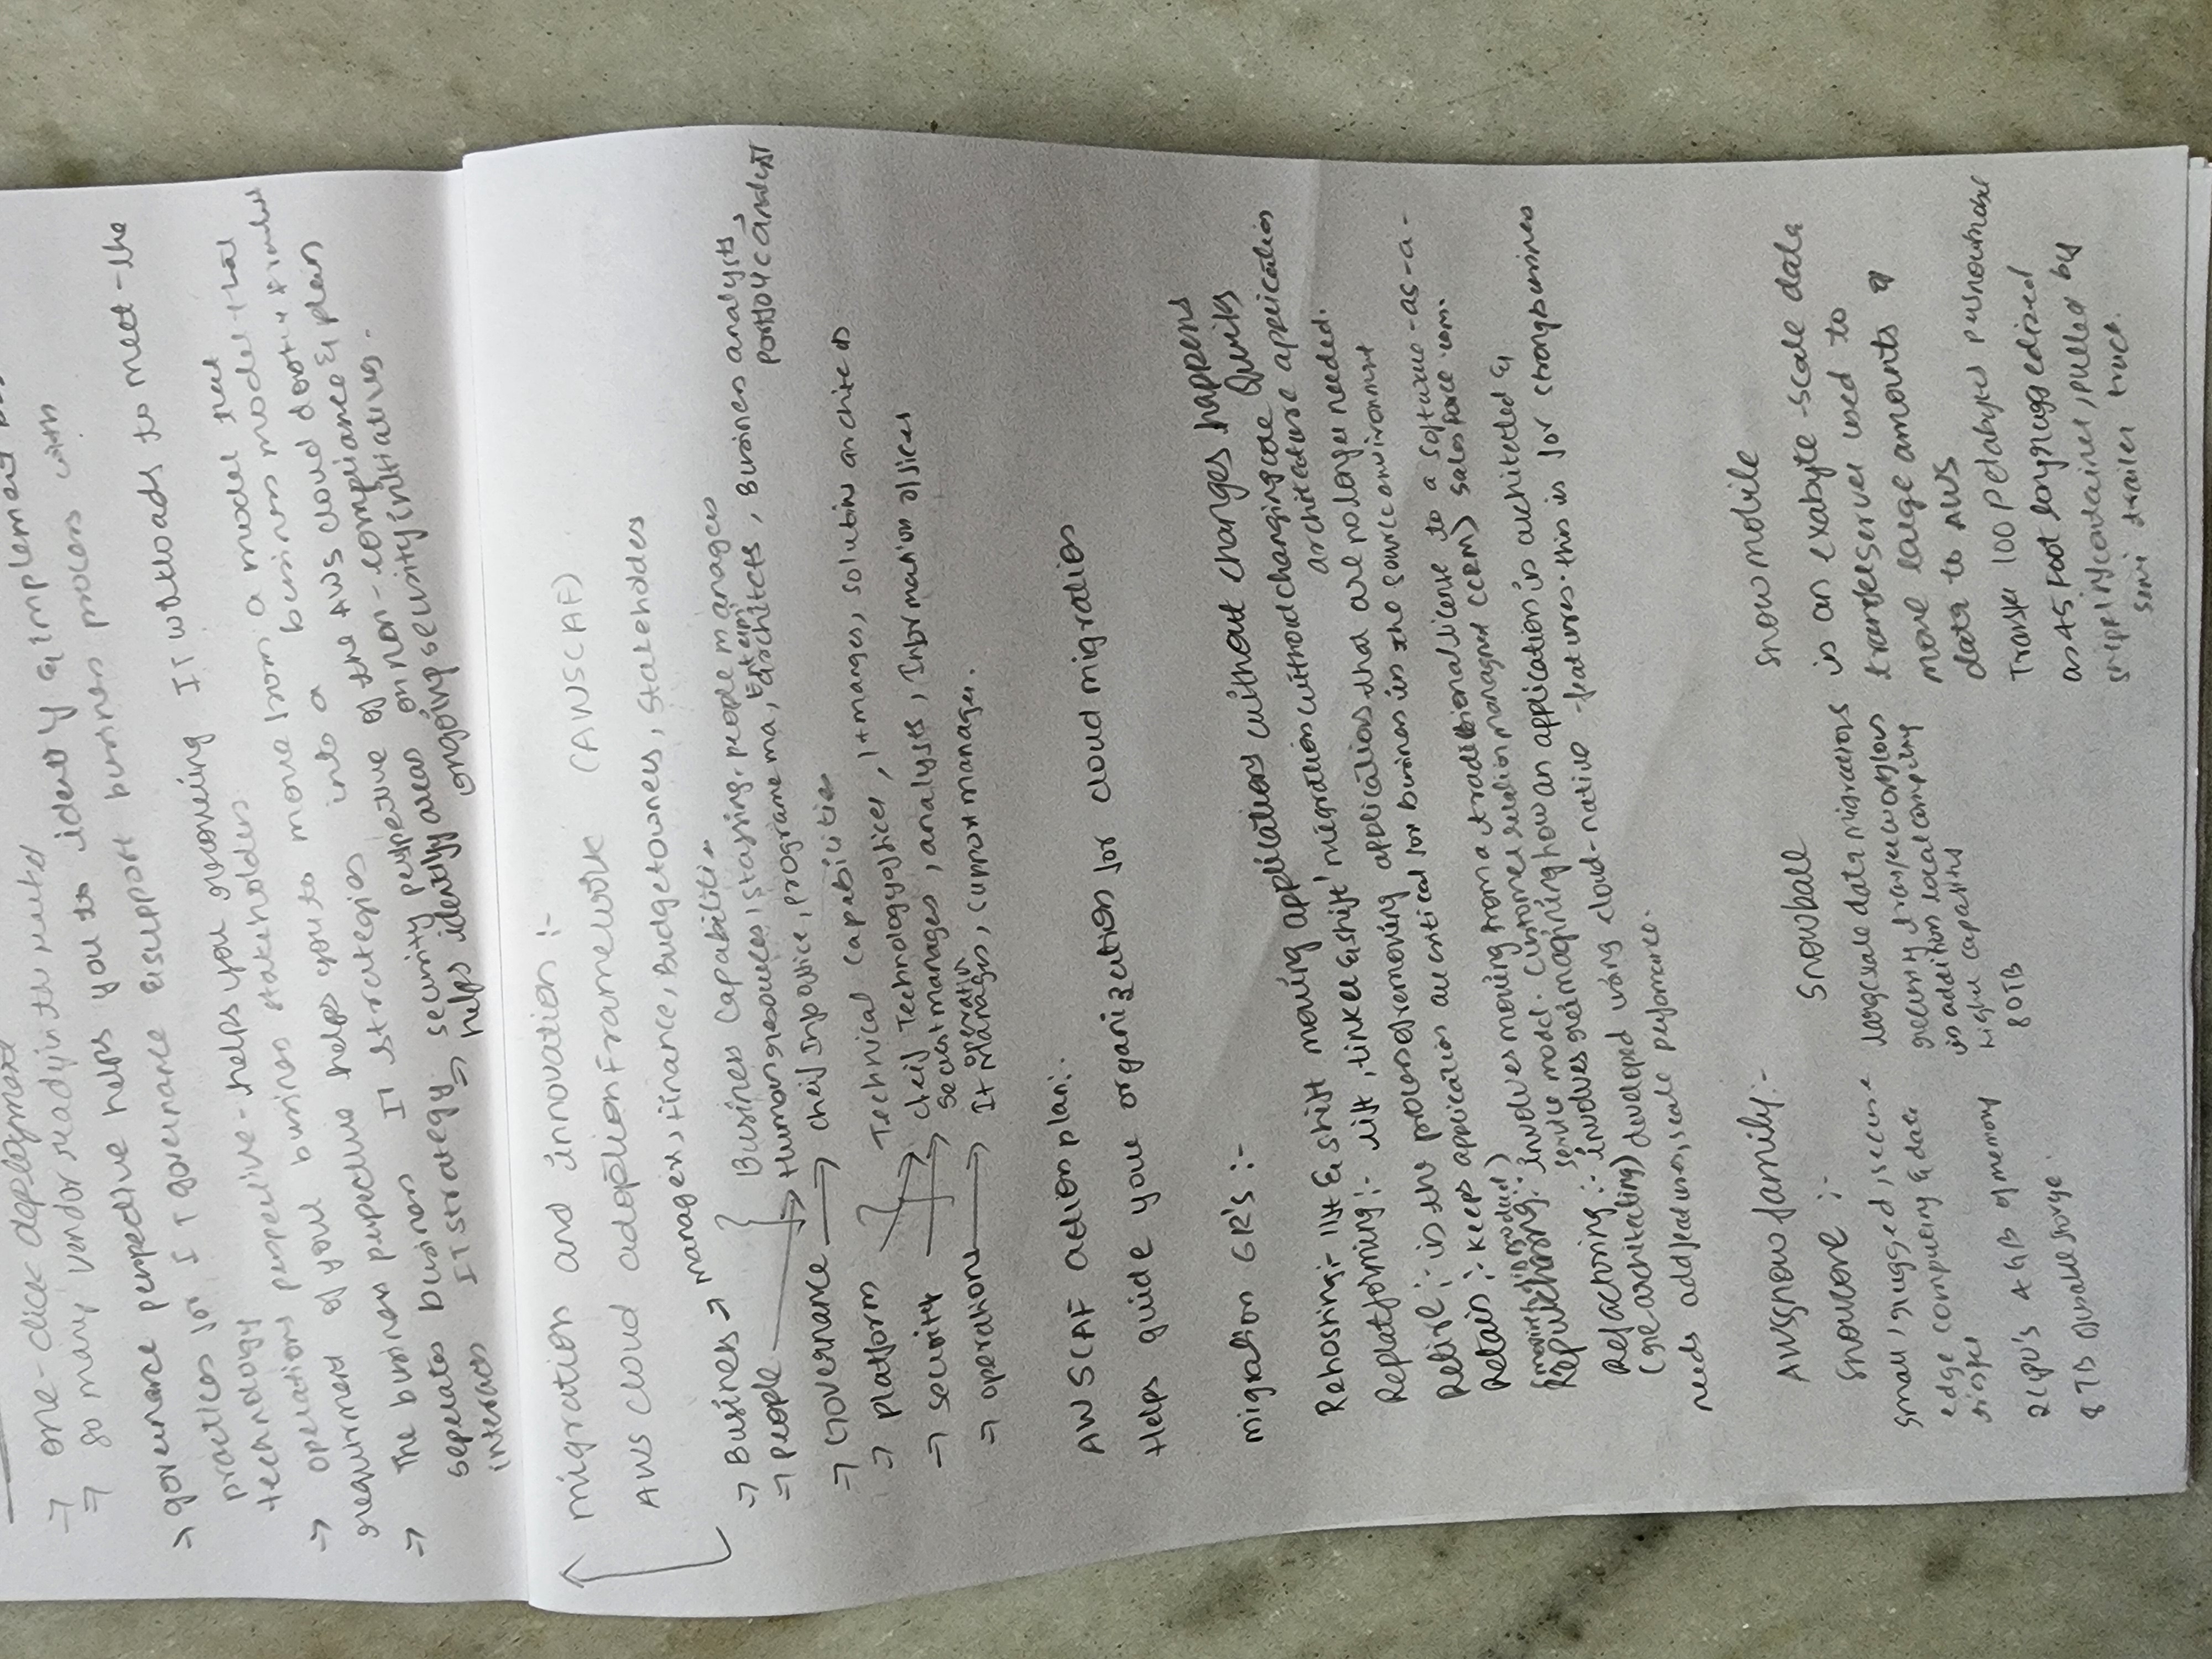 → one-click deployment
→ so many vendor ready in the market
→ governance perspective helps you to identify & implement
practices for IT governance & support business process with
technology
→ operations perspective - helps you recovering IT workloads to meet the
requirment of your business stakeholders
→ The business perpective helps you to move from a model that
seperates business IT strategies into a business model that
interacts IT strategy
→ security perspective of the AWS cloud
helps identify areas on non-compliance & plan
ongoing security initiatives.
migration and innovation :-
AWS cloud adoption Framework (AWSCAF)
→ Business → managers, Finance, Budget owners, Stakeholdes
Business Capabilities
→ people → Human resources, staffing, people managers
→ Governance → cheif Info office, programe ma, Enterpi architets, Business analysts,
portfolic analyst
Technical Capabilities
→ platform → cheif Technology officer, It manges, solution architects
→ security → managers, analysts, Information officer
→ operations → It operatin Manages, support manager.
AWSCAF action plan:.
Helps guide your organization for cloud migration
migration 6R's :-
Rehosting:- lift & shift moving applications without changes happens
Quickly
Replatforming:- lift, tinker & shift' migration without changing core
architecture application
Retire:- is the process of removing application that are no longer needed.
Retain:- Keeps application are critical for business in the source environment
Repurchasing:- involves moving from a traditional license to a software-as-a-
service model. Customer relation managment (CRM) salesforce.com.
Refactoring:- involves reimagining how an application is architected &
(re-architecting) developed using cloud-native features. this is for strong business
needs add features, scale perfomance.
AWS snow family:-
Snowcone :-
small, rugged, secure
edge computing & data
2 CPU's 4 GB of memory
8 TB of usable storge.
Snowball
large scale data migrations
recurring transfer workflows
in addition local computing
higher capasitys
80TB
Snowmobile
is an exabyte-scale data
server used to
move large amounts of
data to AWS
Transfer 100 Petabytes per snowmobile
as 45 Foot long ruggedized
container, pulled by
semi trailer truck.